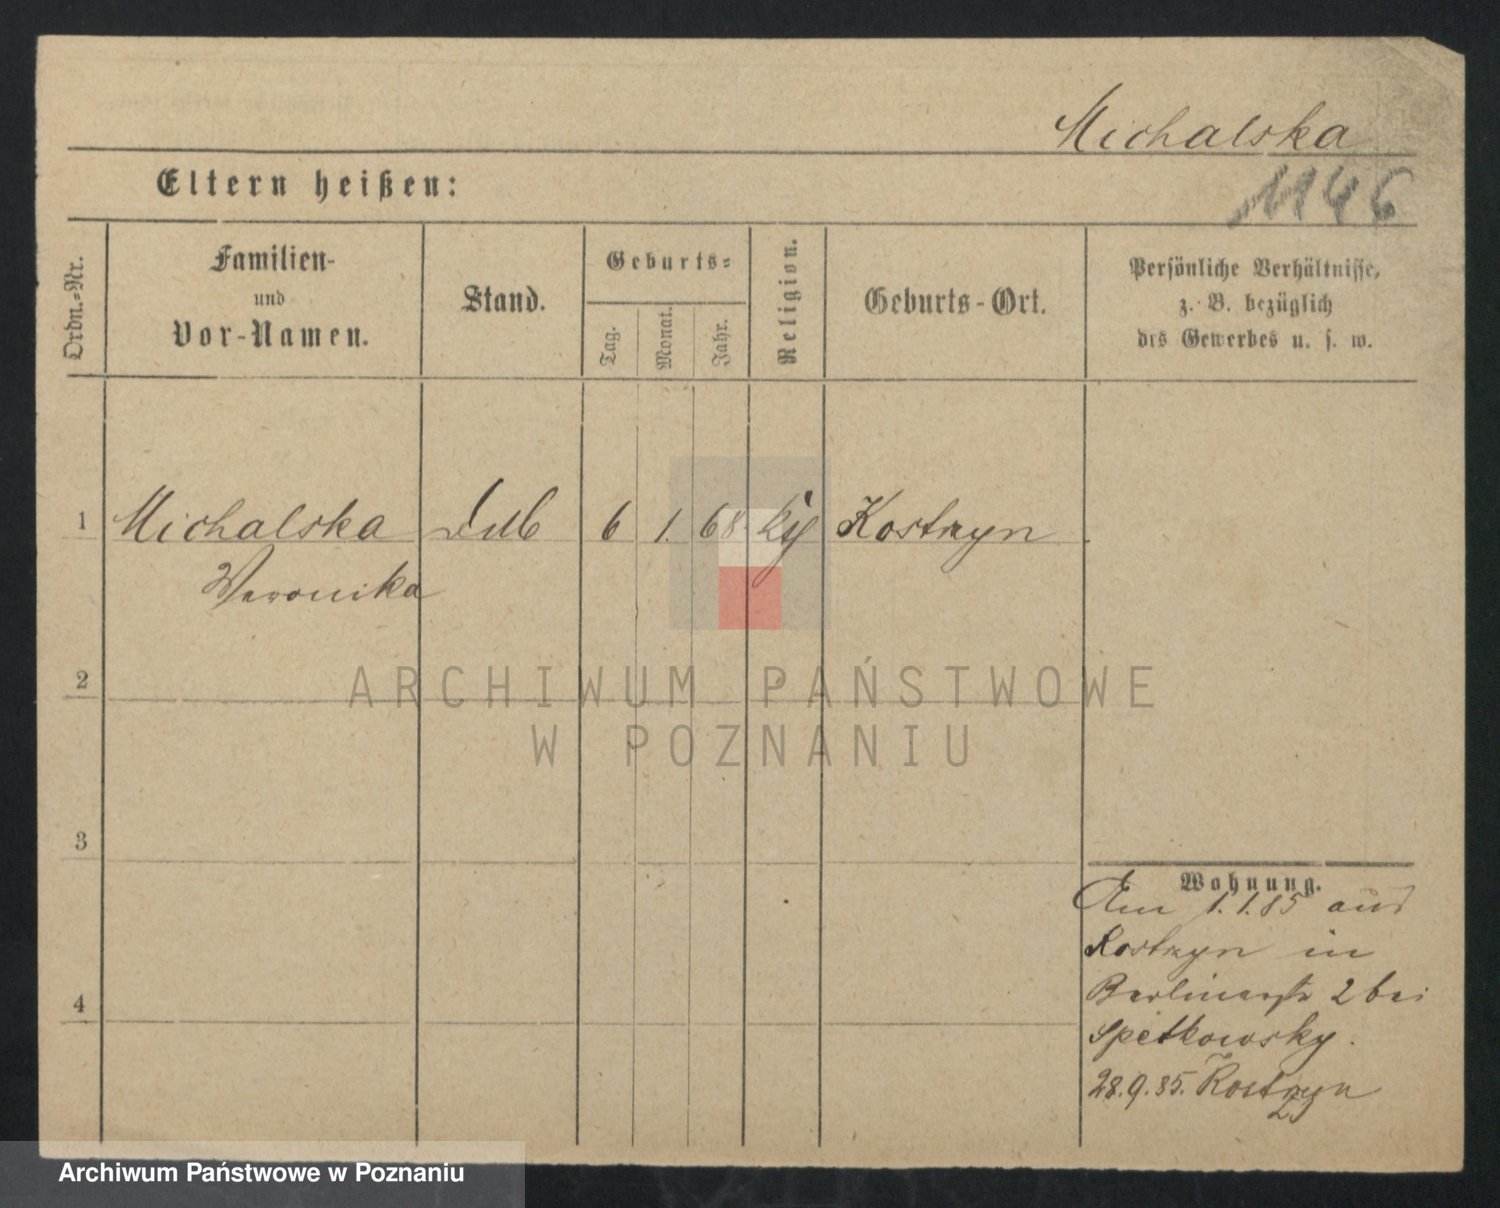 Michalska
Eltern heißen:
1146
Ordn.-Nr.
Familien-
und
Vor-Namen.
Stand.
Geburts-
Tag.
Monat.
Jahr.
Religion.
Geburts-Ort.
Persönliche Verhältnisse,
z. B. bezüglich
des Gewerbes u. s. w.
1 Michalska 6 1. 68. Kostrzyn
Veronika
2
ARCHIWUM PAŃSTWOWE
W POZNANIU
3
Wohnung.
Am 1.1.85 aus
Kostrzyn in
Berlinerstr 2 bei
Spetkowsky.
4
28.9.85. Kostrzyn
Archiwum Państwowe w Poznaniu